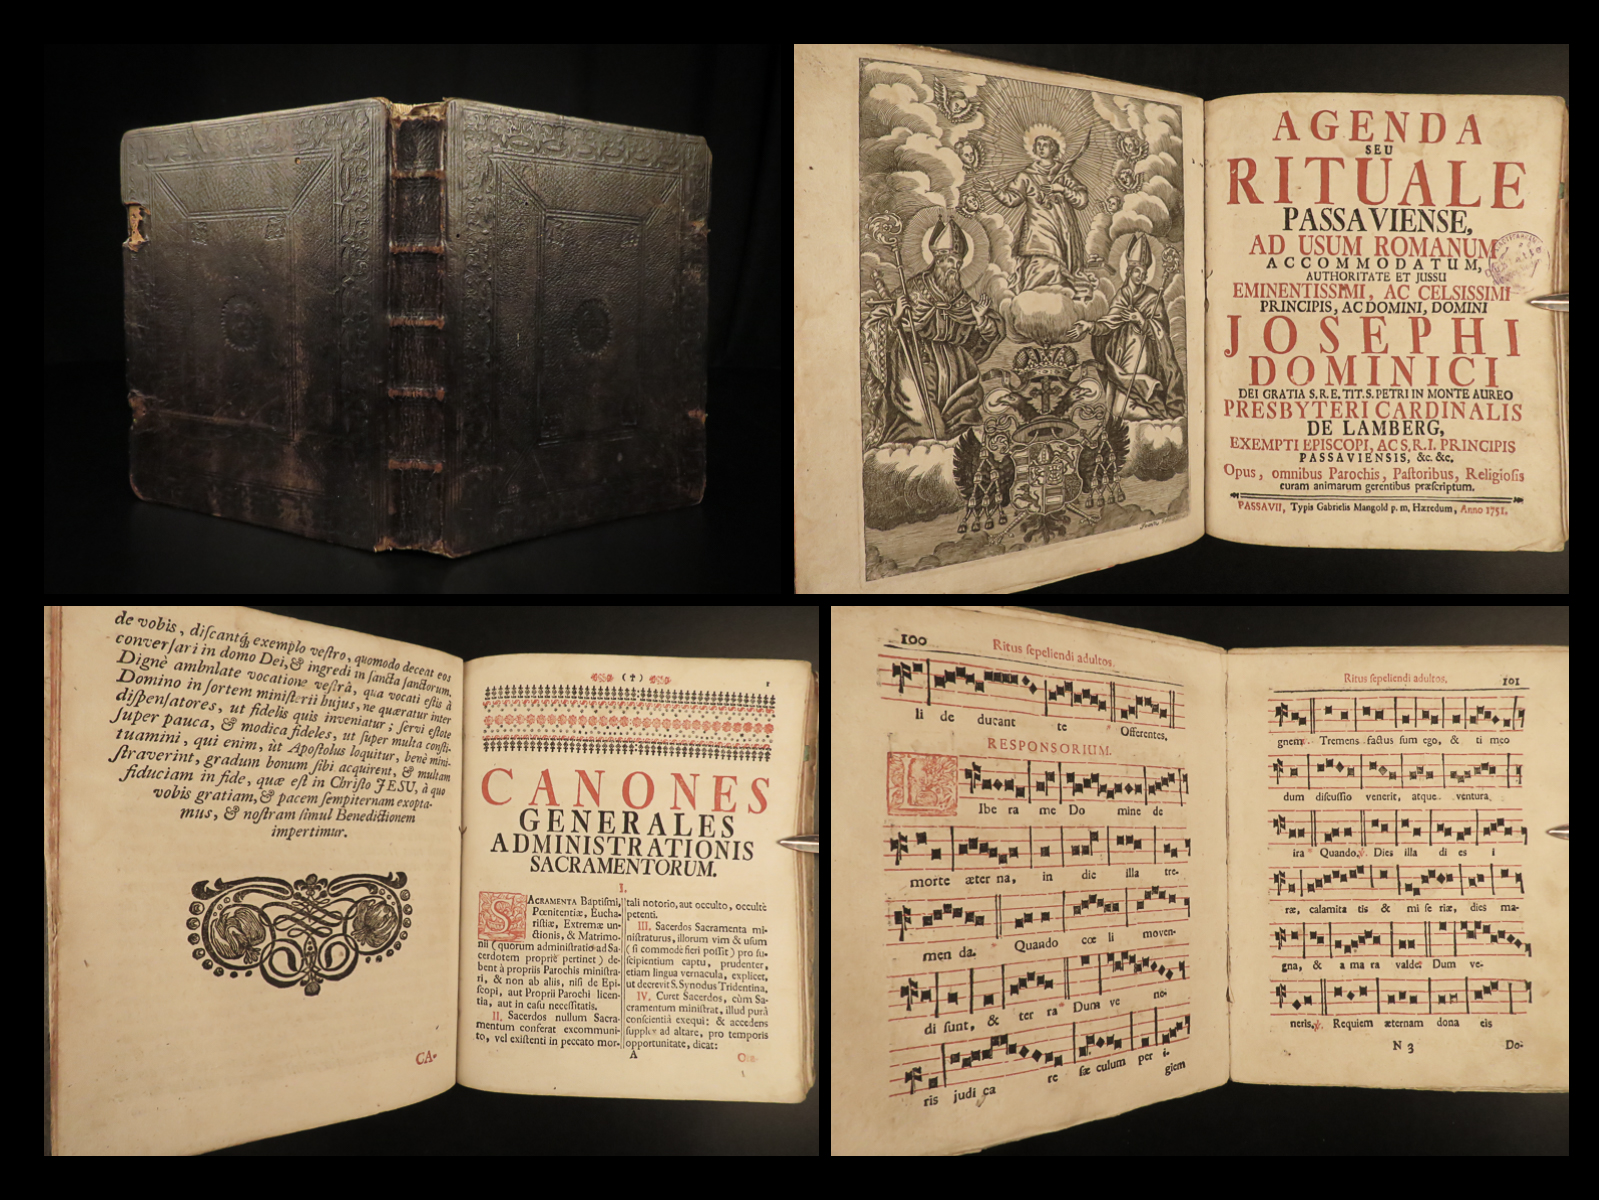 AGENDA
SEU
RITUALE
PASSAVIENSE,
AD USUM ROMANUM
ACCOMMODATUM,
AUTHORITATE ET JUSSU
EMINENTISSIMI, AC CELSISSIMI
PRINCIPIS, AC DOMINI, DOMINI
JOSEPHI
DOMINICI
DEI GRATIA S.R.E. TIT. S. PETRI IN MONTE AUREO
PRESBYTERI CARDINALIS
DE LAMBERG,
EXEMPTI EPISCOPI, AC S.R.I. PRINCIPIS
PASSAVIENSIS, &c. &c.
Opus, omnibus Parochis, Paſtoribus, Religioſis
curam animarum gerentibus præſcriptum.
PASSAVII, Typis Gabrielis Mangold p. m. Hæredum, Anno 1751.
de vobis, diſcantq́; exemplo veſtro, quomodo deceat eos
converſari in domo Dei, & ingredi in ſancta ſanctorum.
Dignè ambnlate vocatione veſtrâ, qua vocati eſtis à
Domino in ſortem miniſterii hujus, ne quæratur inter
diſpenſatores, ut fidelis quis inveniatur; ſervi eſtote
ſuper pauca, & modica fideles, ut ſuper multa conſti-
tuamini, qui enim, ùt Apoſtolus loquitur, benè mini-
ſtraverint, gradum bonum ſibi acquirent, & multam
fiduciam in fide, quæ eſt in Chriſto JESU, à quo
vobis gratiam, & pacem ſempiternam exopta-
mus, & noſtram ſimul Benedictionem
impertimur.
CA-
(†)
1
CANONES
GENERALES
ADMINISTRATIONIS
SACRAMENTORUM.
I.
SACRAMENTA Baptiſmi,
Pœnitentiæ, Eucha-
riſtiæ, Extremæ un-
ctionis, & Matrimo-
nii (quorum adminiſtratio ad Sa-
cerdotem propriè pertinet) de-
bent à propriis Parochis miniſtra-
ri, & non ab aliis, niſi de Epi-
ſcopi, aut Proprii Parochi licen-
tia, aut in caſu neceſſitatis.
II. Sacerdos nullum Sacra-
mentum conferat excommuni-
to, vel exiſtenti in peccato mor-
tali notorio, aut occulto, occultè
petenti.
III. Sacerdos Sacramenta mi-
niſtraturus, illorum vim & uſum
(ſi commodè fieri poſſit) pro ſu-
ſcipientium captu, prudenter,
etiam lingua vernacula, explicet,
ut decrevit S. Synodus Tridentina,
IV. Curet Sacerdos, cùm Sa-
cramentum miniſtrat, illud purâ
conſcientiâ exequi: & accedens
ſupplex ad altare, pro temporis
opportunitate, dicat:
A
100
Ritus ſepeliendi adultos.
li de ducant te Offerentes,
RESPONSORIUM.
LIbe ra me Do mine de
morte æter na, in die illa tre-
men da. Quando cœ li moven-
di ſunt, & ter ra Dum ve ne-
ris judi ca re ſæ culum per i-
giem
Ritus ſepeliendi adultos.
101
gnem. Tremens factus ſum ego, & ti meo
dum diſcuſſio venerit, atque ventura
ira Quando, Dies illa di es i
ræ, calamita tis & mi ſe riæ, dies ma-
gna, & a ma ra valde: Dum ve-
neris, Requiem æternam dona eis
N 3
Do-